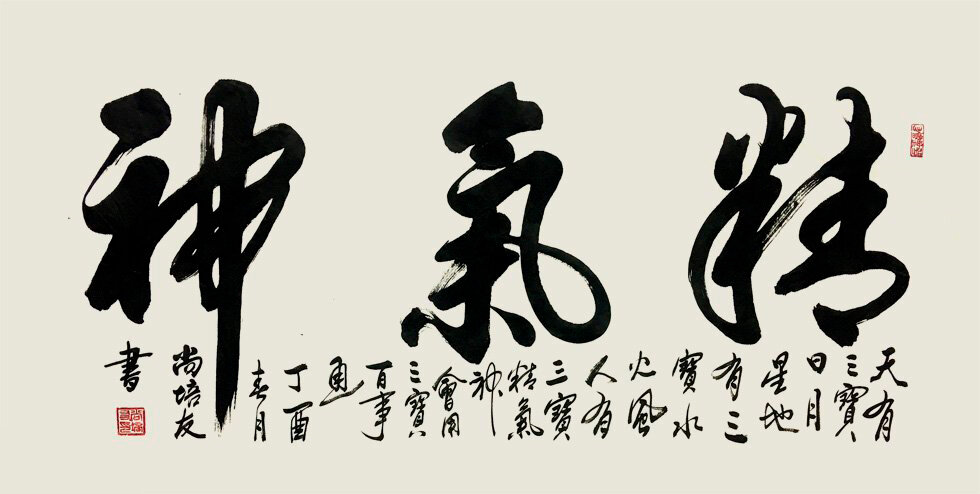 精氣神
天有
三寶
日月
星地
有三
寶水
火風
人有
三寶
精氣
神
會用
三寶
百事
通
丁酉
春月
尚培友
書